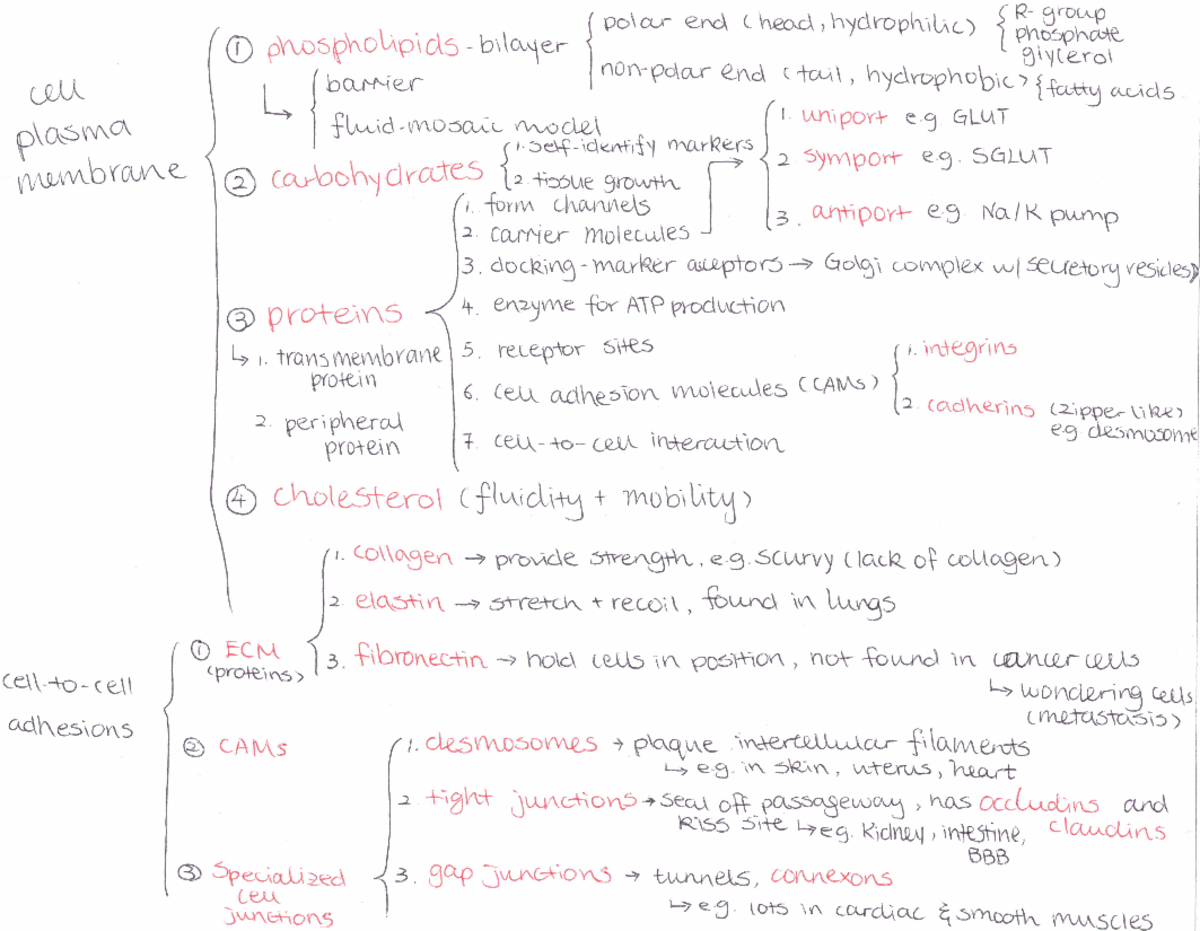 cell
plasma
membrane
① phospholipids - bilayer
polar end (head, hydrophilic)
R-group
phosphate
glycerol
non-polar end (tail, hydrophobic)
fatty acids
barrier
fluid-mosaic model
② carbohydrates
1. self-identify markers
2. tissue growth
1. uniport e.g. GLUT
2 symport e.g. SGLUT
3. antiport e.g. Na/K pump
③ proteins
↳ 1. transmembrane
protein
2. peripheral
protein
1. form channels
2. carrier molecules
3. docking-marker acceptors → Golgi complex w/ secretory vesicles)
4. enzyme for ATP production
5. receptor sites
6. cell adhesion molecules (CAMs)
1. integrins
2. cadherins (zipper like)
e.g desmosome
7. cell-to-cell interaction
④ cholesterol (fluidity + mobility)
cell-to-cell
adhesions
① ECM
(proteins)
1. collagen → provide strength, e.g. scurvy (lack of collagen)
2 elastin → stretch + recoil, found in lungs
3. fibronectin → hold cells in position, not found in cancer cells
↳ wondering cells
(metastasis)
② CAMs
③ Specialized
cell
junctions
1. desmosomes → plaque intercellular filaments
↳ e.g. in skin, uterus, heart
2 tight junctions → seal off passageway, has occludins and
kiss site ↳ e.g. kidney, intestine, claudins
BBB
3. gap junctions → tunnels, connexons
↳ e.g. lots in cardiac & smooth muscles